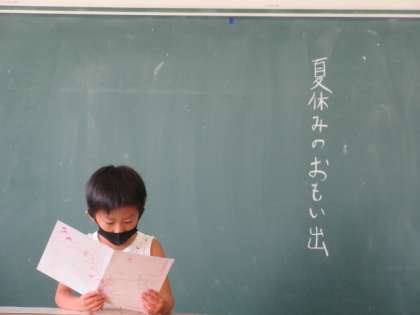 夏休みのおもい出